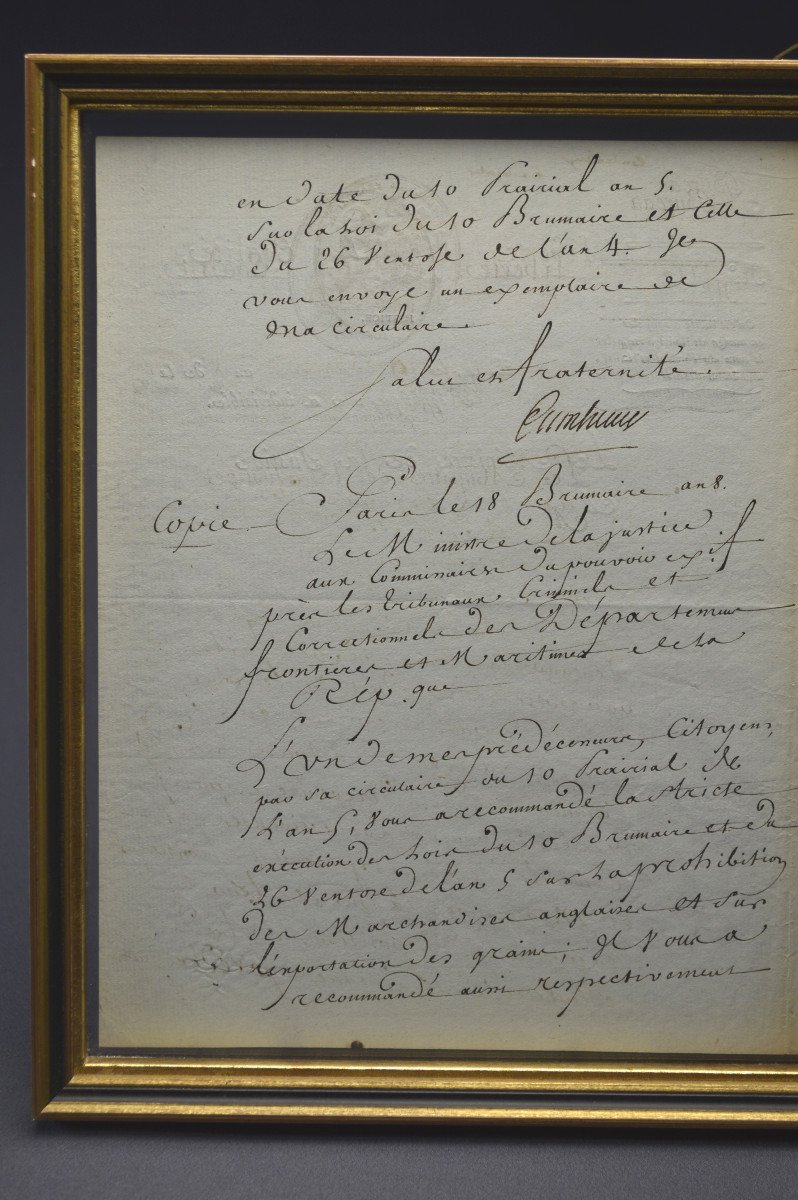 en date du 10 Prairial an 5.
sur la Loi du 10 Brumaire et Celle
du 26 Ventose de l'an 4. Je
vous envoye un exemplaire de
Ma circulaire.
Salut et fraternité.
Cambaceres
Copie - Paris le 18 Brumaire an 8.
Le Ministre de la justice
aux Commissaires du pouvoir ex.if
près les tribunaux Criminels et
Correctionnels des Départemens
frontieres et Maritimes de la
Rép. que
L'un de mes prédécesseurs, Citoyens,
par sa circulaire du 10 Prairial de
L'an 5, Vous a recommandé la stricte
exécution des Lois du 10 Brumaire et du
26 Ventose de l'an 5 sur La prohibition
des Marchandises anglaises et sur
l'exportation des grains; il Vous a
recommandé aussi respectivement